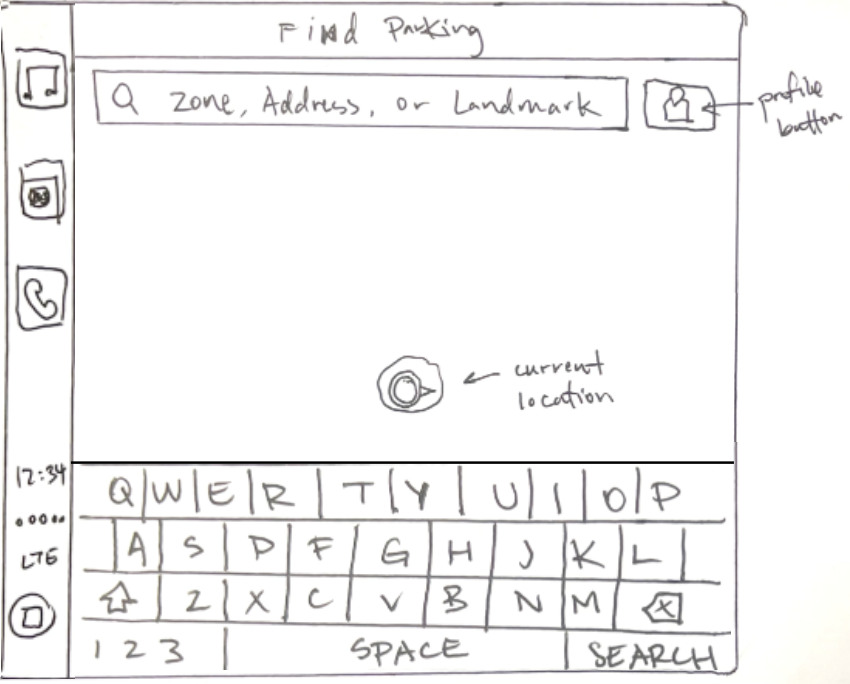 Find Parking
Zone, Address, or Landmark
profile
button
current
location
12:34
LTE
Q W E R T Y U I O P
A S D F G H J K L
Z X C V B N M X
1 2 3 SPACE SEARCH